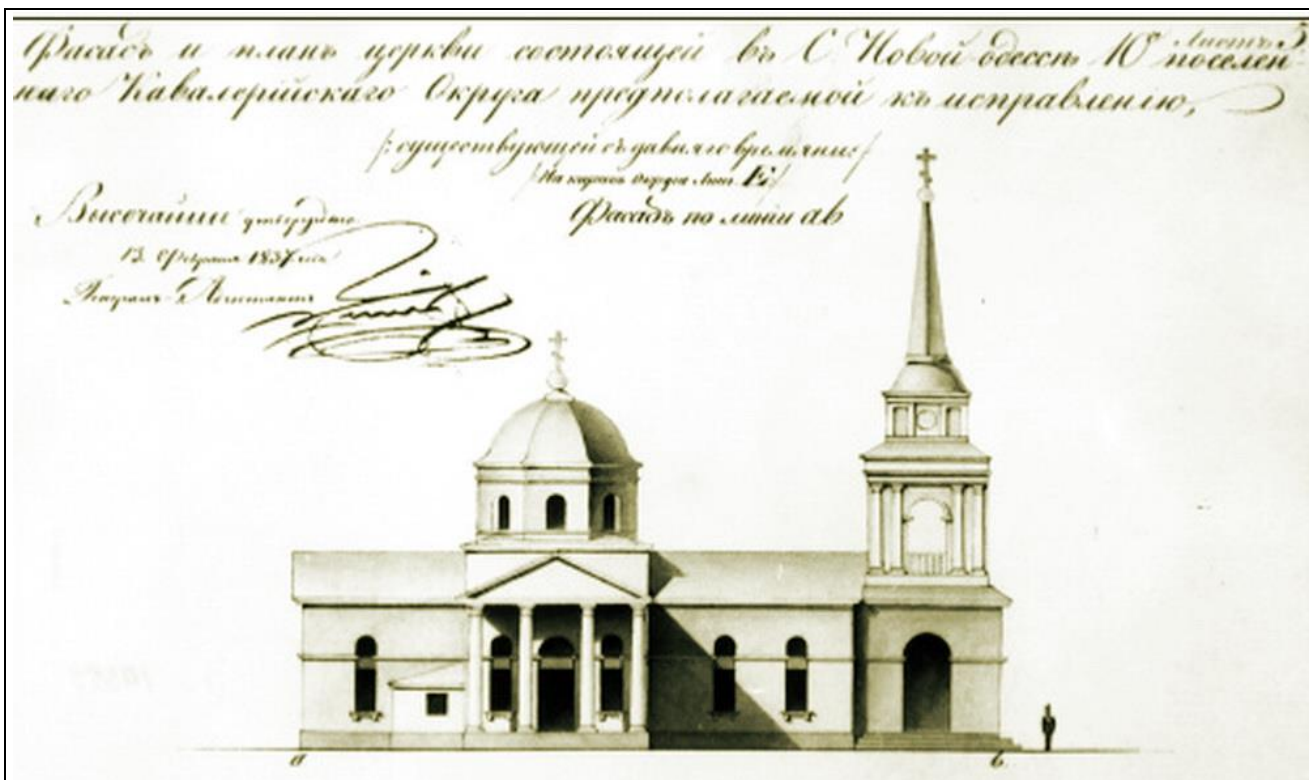 Листъ 3
Фасадъ и планъ церкви состоящей въ С. Новой одессѣ 10го поселен-
наго Кавалерійскаго Округа предполагаемой къ исправленію,
/: существующей съ давняго времяни:/
/На картѣ округа Лит. Е/
Фасадъ по линіи ab
Высочайше утверждено
13 Февраля 1837 года
Генералъ-Адъютантъ
a b.